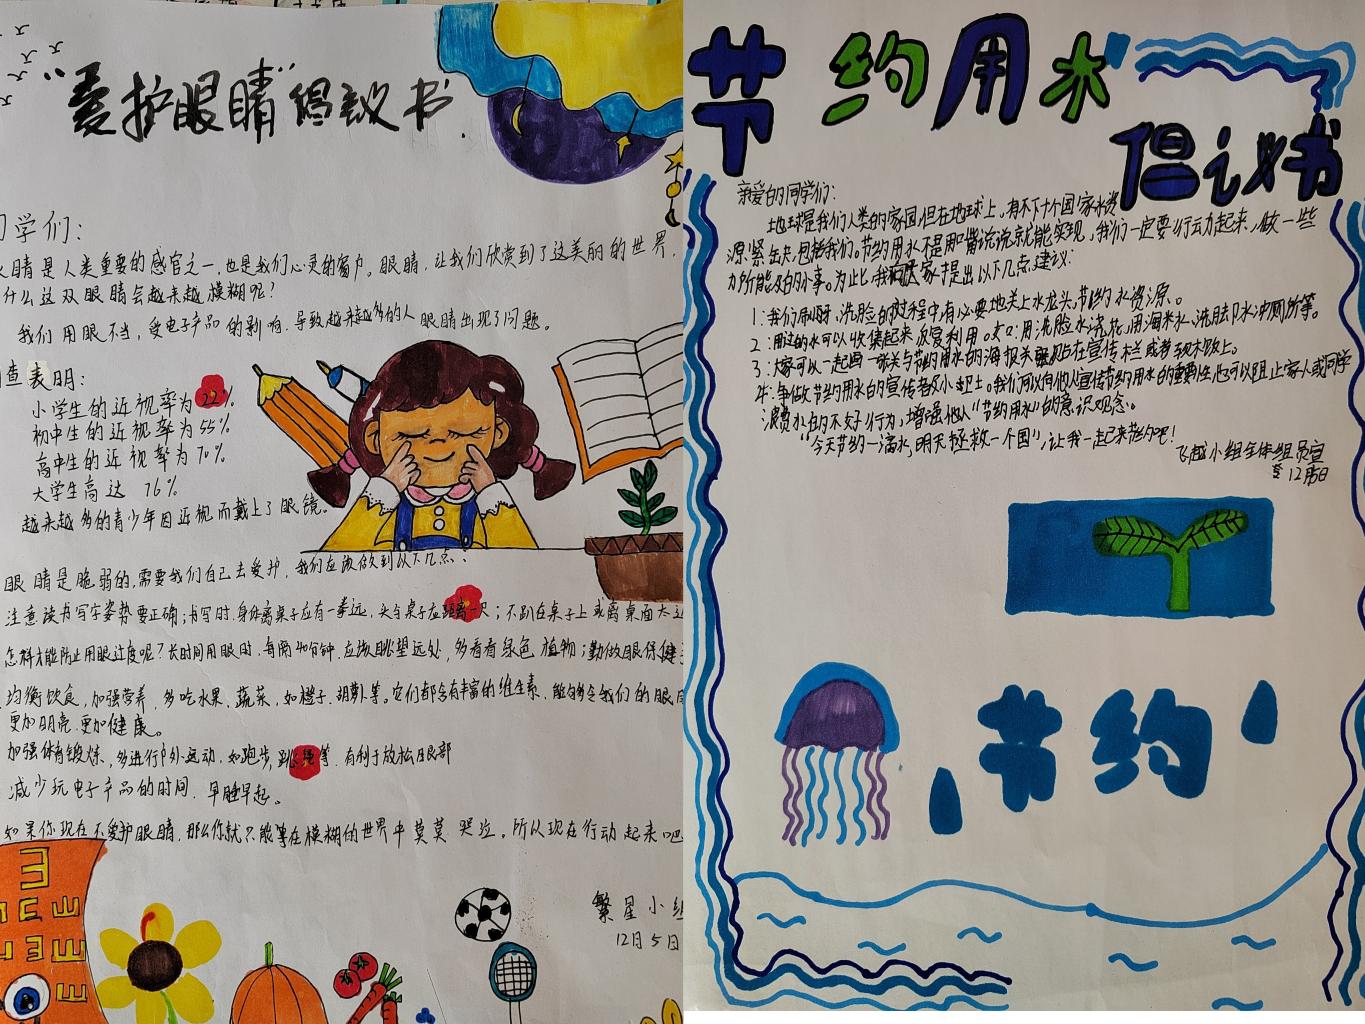 "爱护眼睛"倡议书
同学们：
眼睛是人类重要的感官之一，也是我们心灵的窗户。眼睛，让我们欣赏到了这美丽的世界，
什么这双眼睛会越来越模糊呢？
我们用眼不当，受电子产品的影响，导致越来越多的人眼睛出现了问题。
查表明：
小学生的近视率为22%
初中生的近视率为55%
高中生的近视率为70%
大学生高达76%
越来越多的青少年因近视而戴上了眼镜。
眼睛是脆弱的，需要我们自己去爱护，我们应该做到以下几点：
注意读书写字姿势要正确；书写时，身体离桌子应有一拳远，头与桌子应距离一尺；不趴在桌子上或离桌面太近
怎样才能防止用眼过度呢？长时间用眼时，每隔40分钟，应该眺望远处，多看看绿色植物；勤做眼保健
均衡饮食，加强营养，多吃水果、蔬菜，如橙子、胡萝卜等。它们都含有丰富的维生素，能够令我们的眼
更加明亮，更加健康。
加强体育锻炼，多进行户外运动，如跑步，跳绳等，有利于放松眼部
减少玩电子产品的时间，早睡早起。
如果你现在不爱护眼睛，那么你就只能等在模糊的世界中莫莫哭泣。所以现在行动起来吧
繁星小组
12月5日
节约用水
倡议书
亲爱的同学们：
地球是我们人类的家园，但在地球上，有不下十个国家水资
源紧缺，包括我们。节约用水不是用嘴说说就能实现，我们一定要行动起来，做一些
力所能及的小事。为此，我向大家提出以下几点建议：
1：我们在刷牙、洗脸的过程中有必要地关上水龙头，节约水资源。
2：用过的水可以收集起来反复利用。如：用洗脸水浇花，用淘米水、洗脚水冲厕所等。
3：大家可以一起画一张关于节约用水的海报，张贴在宣传栏或者黑板上。
4：争做节约用水的宣传者及小卫士。我们可以向他人宣传节约用水的重要性，也可以阻止家人或同学
浪费水的不好行为，增强他人"节约用水"的意识观念。
"今天节约一滴水，明天拯救一个国"，让我一起来节约吧！
飞越小组全体组员宣
12月5日
节约